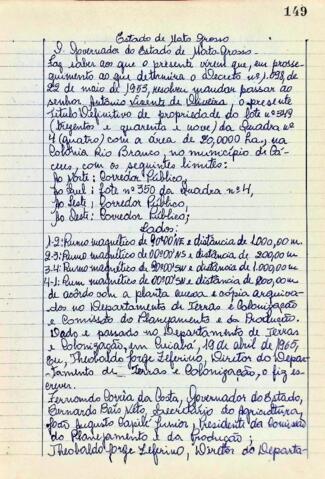 149
Estado de Mato Grosso
O Governador do Estado de Mato Grosso.
Faz saber aos que o presente virem que, em prosse-
guimento ao que determina o Decreto nº 1.698, de
22 de maio de 1953, resolveu mandar passar ao
senhor Antônio Vicente de Oliveira, o presente
Título Definitivo de propriedade do lote nº 349
(trezentos e quarenta e nove) da Quadra nº
4 (quatro) com a área de 20,0000 ha, na
Colônia Rio Branco, no município de Cá-
ceres, com os seguintes limites:
Ao Norte; Corredor Público,
Ao Sul; Lote nº 350 da Quadra nº 4,
Ao Leste; Corredor Público,
Ao Oeste; Corredor Público;
Lados:
1-2: Rumo magnético de 90º00'NE e distância de 1.000,00 m.
2-3: Rumo magnético de 00º00' e distância de 200,00 m
3-4: Rumo magnético de 90º00'SW e distância de 1.000,00 m
4-1: Rum magnético de 00º00' e distância de 200,00 m
de acôrdo com a planta anexa e cópia arquiva-
da no Departamento de Terras e Colonização
e Comissão do Planejamento e da Produção.
Dado e passado no Departamento de Terras
e Colonização, em Cuiabá, 19 de abril de 1965,
Eu, Theobaldo Jorge Leferino, Diretor do Depar-
tamento de Terras e Colonização, o fiz es-
crever.
Fernando Corrêa da Costa, Governador do Estado,
Bernardo Bais Neto, Secretário da Agricultura,
João Augusto Capilé Junior, Presidente da Comissão
do Planejamento e da Produção;
Theobaldo Jorge Leferino, Diretor do Departa-